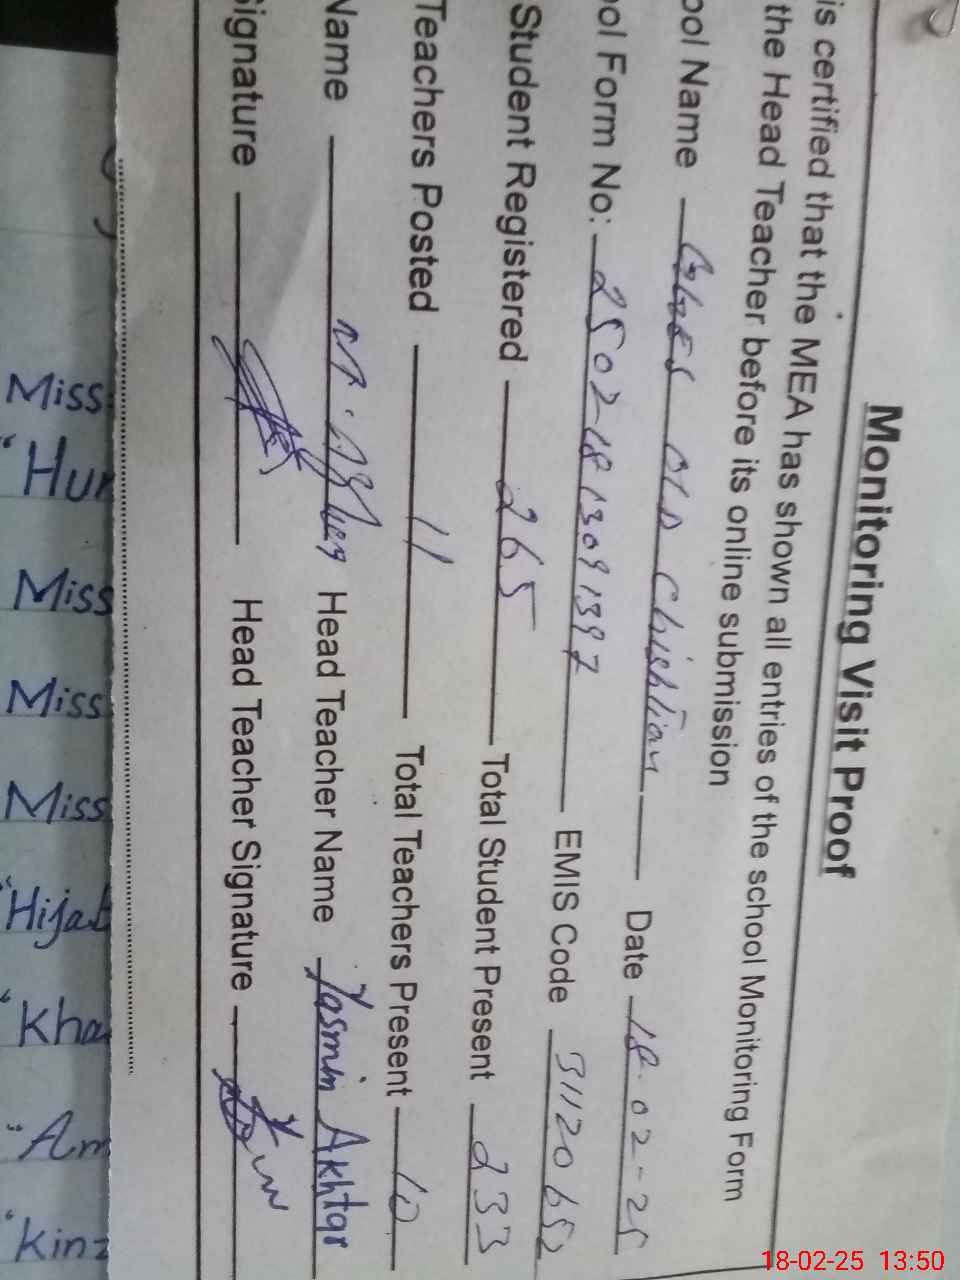 Monitoring Visit Proof
is certified that the MEA has shown all entries of the school Monitoring Form
the Head Teacher before its online submission
ool Name GGES OLD Chishtian Date 18-02-25
ool Form No: 2502-1813091397 EMIS Code 31120652
Student Registered 265 Total Student Present 233
Teachers Posted 11 Total Teachers Present 10
Name Head Teacher Name Yasmin Akhtar
Signature Head Teacher Signature
Miss
"Hur
Miss
Miss
Miss
"Hijab
"Kha
"Am
"Kinz
18-02-25 13:50